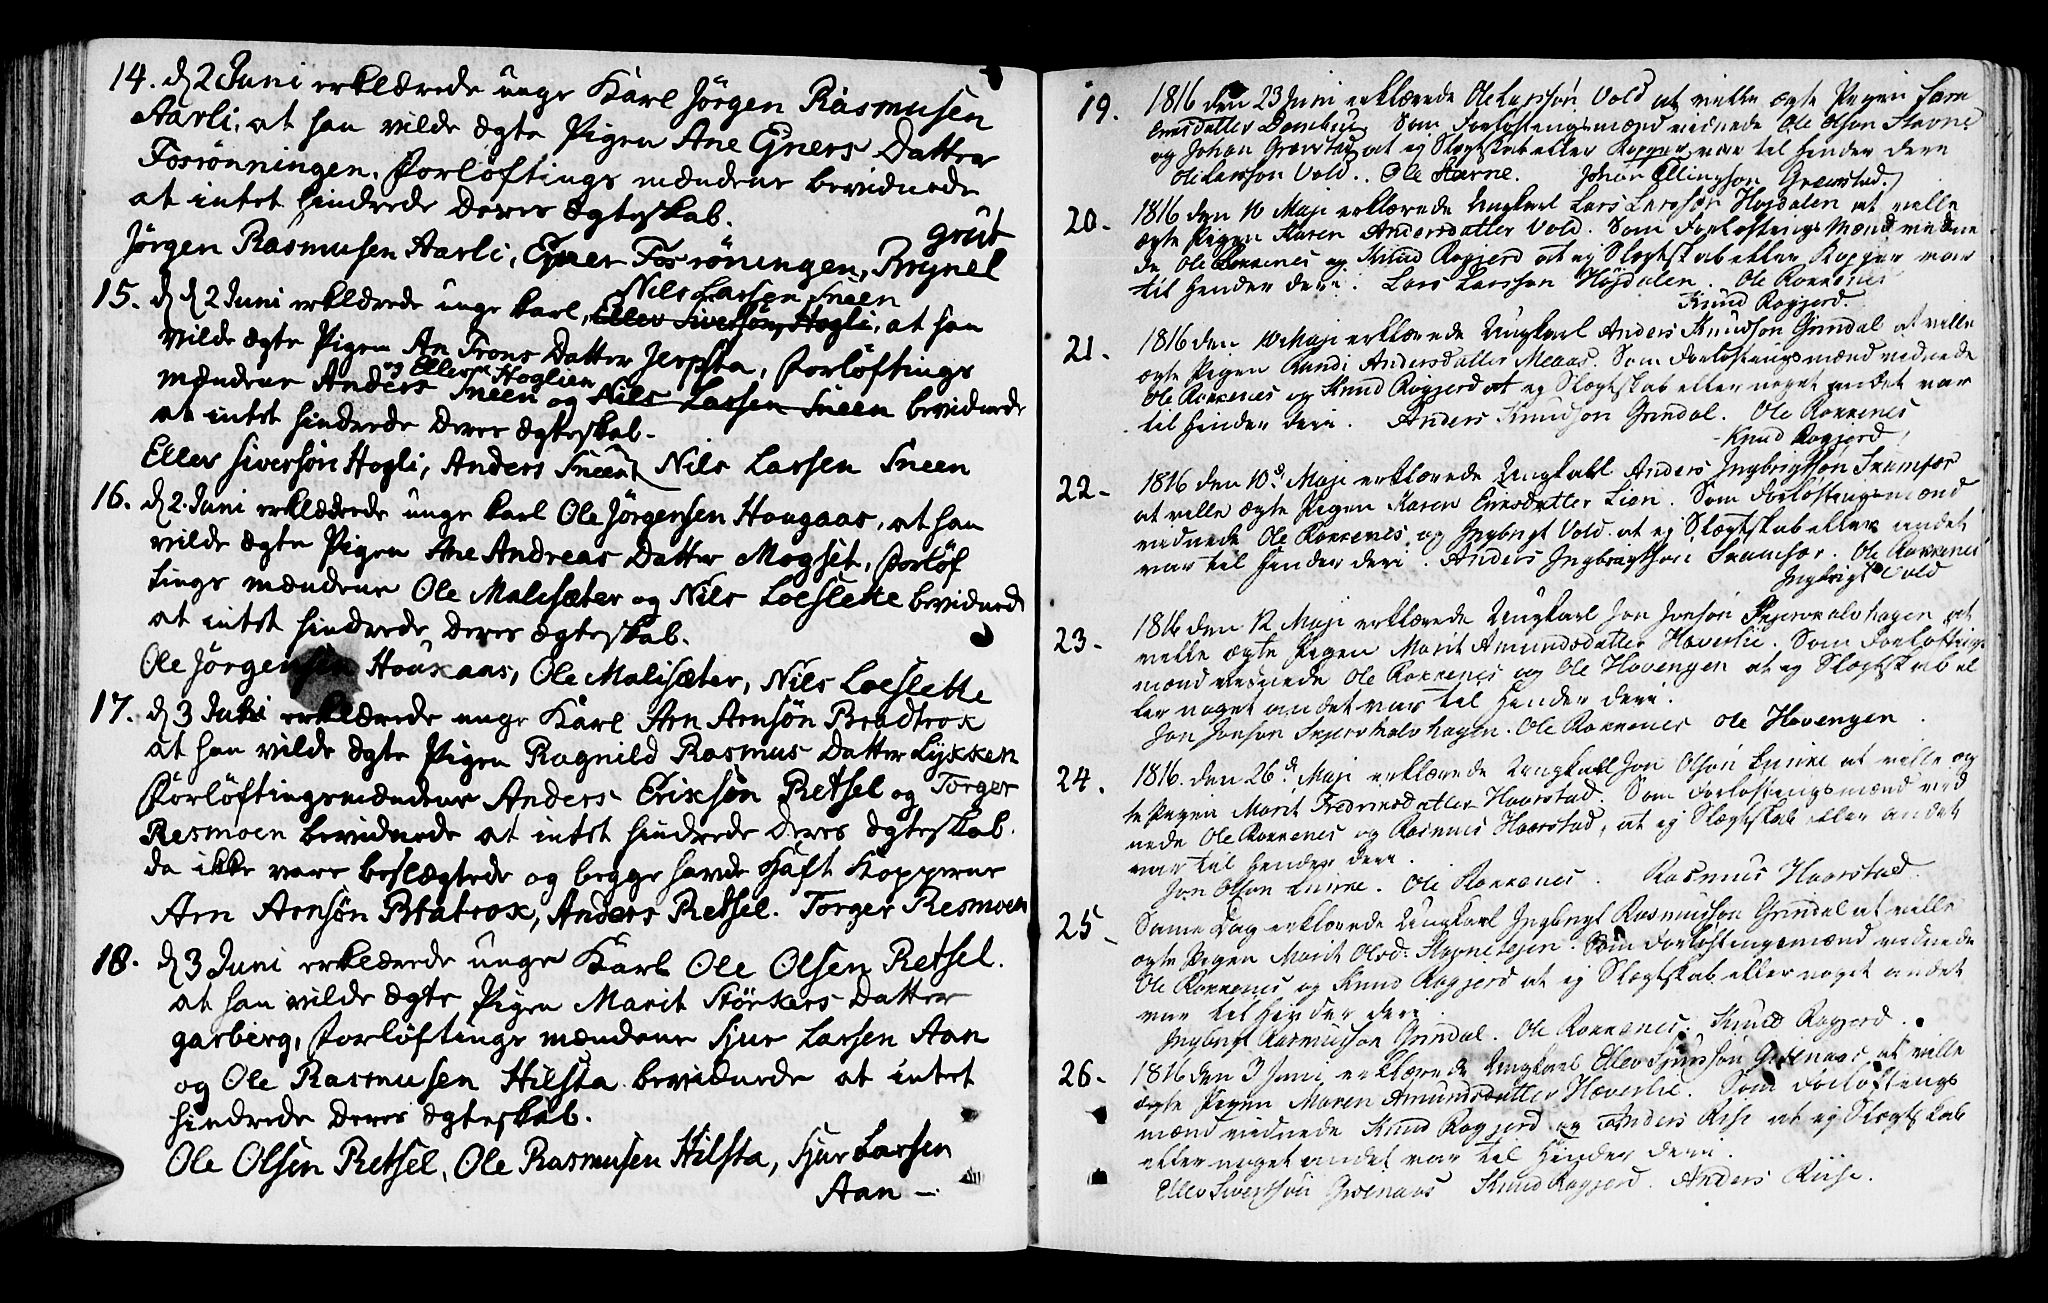 14. d 2 Juni erklærede unge Karl Jörgen Rasmusen
Aarli, at han vilde ægte Pigen Ane Ejners Datter
Fosrønningen. Forlöftings mændene bevidnede
at intet hindrede deres Ægteskab.
grut
Jörgen Rasmusen Aarli, Ejner Fosröningen, Brynel
15. d d 2 Juni erklærede unge karl, Nils Larsen Sneen
Ellev Siversön Hogli, at han
vilde ægte Pigen An Trons Datter Jerpsta, Forlöftings
og Ellev Hoglien
mændene Anders Sneen og Nils Larsen Sneen bevidnede
at intet hindrede deres Ægteskab.
Ellev Siversön Hogli, Anders Sneen, Nils Larsen Sneen
16. d 2 Juni erklærede unge karl Ole Jörgensen Hougaas, at han
vilde ægte Pigen Ane Andreas Datter Mogset, Forlöf
tings mændene Ole Malisæter og Nils Loeslette bevidnede
at intet hindrede deres Ægteskab.
Ole Jörgensen Houkaas, Ole Malisæter, Nils Loeslette
17. d 3 Juni erklærede unge Karl Arn Arnsön Bradtrok
at han vilde ægte Pigen Ragnild Rasmus Datter Lykken
Forlöftingsmændene Anders Eriksön Retsel og Torger
Resmoen bevidnede at intet hindrede deres Ægteskab.
da ikke vare beslægtede og begge havde haft Kopperne
Arn Arnsön Bratrok, Anders Retsel. Torger Resmoen
18. d 3 Juni erklærede unge Karl Ole Olsen Retsel.
at han vilde ægte Pigen Marit Störkers Datter
garberg, Forlöftings mændene Sjur Larsen Aan
og Ole Rasmusen Hilsta bevidnede at intet
hindrede deres Ægteskab.
Ole Olsen Retsel, Ole Rasmusen Hilsta, Sjur Larsen
Aan –
19. 1816 den 23 Juni erklærede Ole Larssön Vold at ville ægte Pigen
Som Forløftingsmænd vidnede Ole Olson Stavne
og Johan Grævstad at ej Slægtskab eller Kopper var til Hinder deri
Ole Larsson Vold. Ole Stavne. Johan Ellingson Grævstad.
20. 1816 den 10 Maji erklærede Ungkarl Lars Larssön Høgdalen at ville
ægte Pigen Karen Andersdatter Vold. Som Forløftings Mænd vidne
de Ole Rokkenes og Knud Rogjerd at ej Slægtskab eller Kopper var
til Hinder deri. Lars Larsson Høgdalen. Ole Rokkenes
Knud Rogjerd.
21. 1816 den 10 Maji erklærede Ungkarl Anders Knudson Grindal at ville
ægte Pigen Randi Andersdatter Meaas. Som Forløftingsmænd vidnede
Ole Rokkenes og Knud Rogjerd at ej Slægtskab eller noget andet var
til Hinder deri. Anders Knudson Grindal. Ole Rokkenes
Knud Rogjerd
22- 1816 den 10d Maji erklærede Ungkarl Anders Ingbrigtsøn Skamfær
at ville ægte Pigen Karen Ericsdatter Lien. Som Forløftingsmænd
vidnede Ole Rokkenes og Ingbrigt Vold at ej Slægtskab eller andet
var til Hinder deri. Anders Ingbrigtson Skamfær. Ole Rokkenes
Ingbrigt Vold
23- 1816 den 12 Maji erklærede Ungkarl Jon Jonsön Skjervholvhagen at
ville ægte Pigen Marit Amundsdatter Hæverlie. Som Forløftings
mænd vidnede Ole Rokkenes og Ole Hovengen at ej Slægtskab el
ler noget andet var til Hinder deri.
Jon Jonson Skjervholvhagen. Ole Rokkenes Ole Hovengen.
24. 1816. den 26d Maji erklærede Ungkarl Jon Olsön Lunke at ville æg
te Pigen Marit Fredricsdatter Haarstad. Som Forløftingsmænd vid
nede Ole Rokkenes og Rasmus Haarstad, at ej Slægtskab eller andet
var til Hinder deri.
Jon Olson Lunke. Ole Rokkenes. Rasmus Haarstad.
25- Same Dag erklærede Ungkarl Ingbrigt Rasmusson Grindal at ville
ægte Pigen Marit Olsd: Som Forløftingsmænd vidnede
Ole Rokkenes og Knud Rogjerd at ej Slægtskab eller noget andet
var til Hinder deri.
Ingbrigt Rasmusson Grindal. Ole Rokkenes. Knud Rogjerd.
26- 1816 den 3 Juni erklærede Ungkarl Ellev Grøenaas at ville
ægte Pigen Maren Amundsdatter Hæverlie. Som Forløftings
mænd vidnede Knud Rogjerd og Anders Riise at ej Slægtskab
eller noget andet var til Hinder deri.
Ellev Grøenaas Knud Rogjerd. Anders Riise.